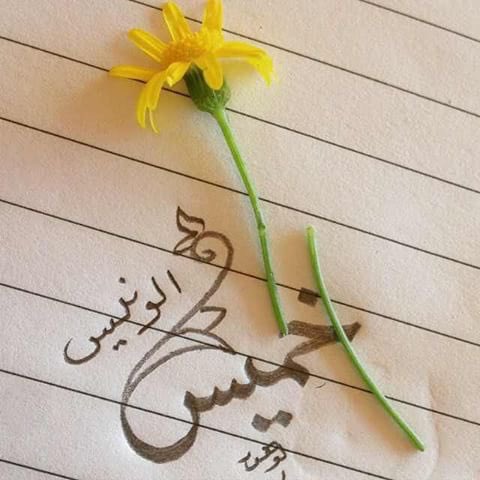 خميس
الونيس